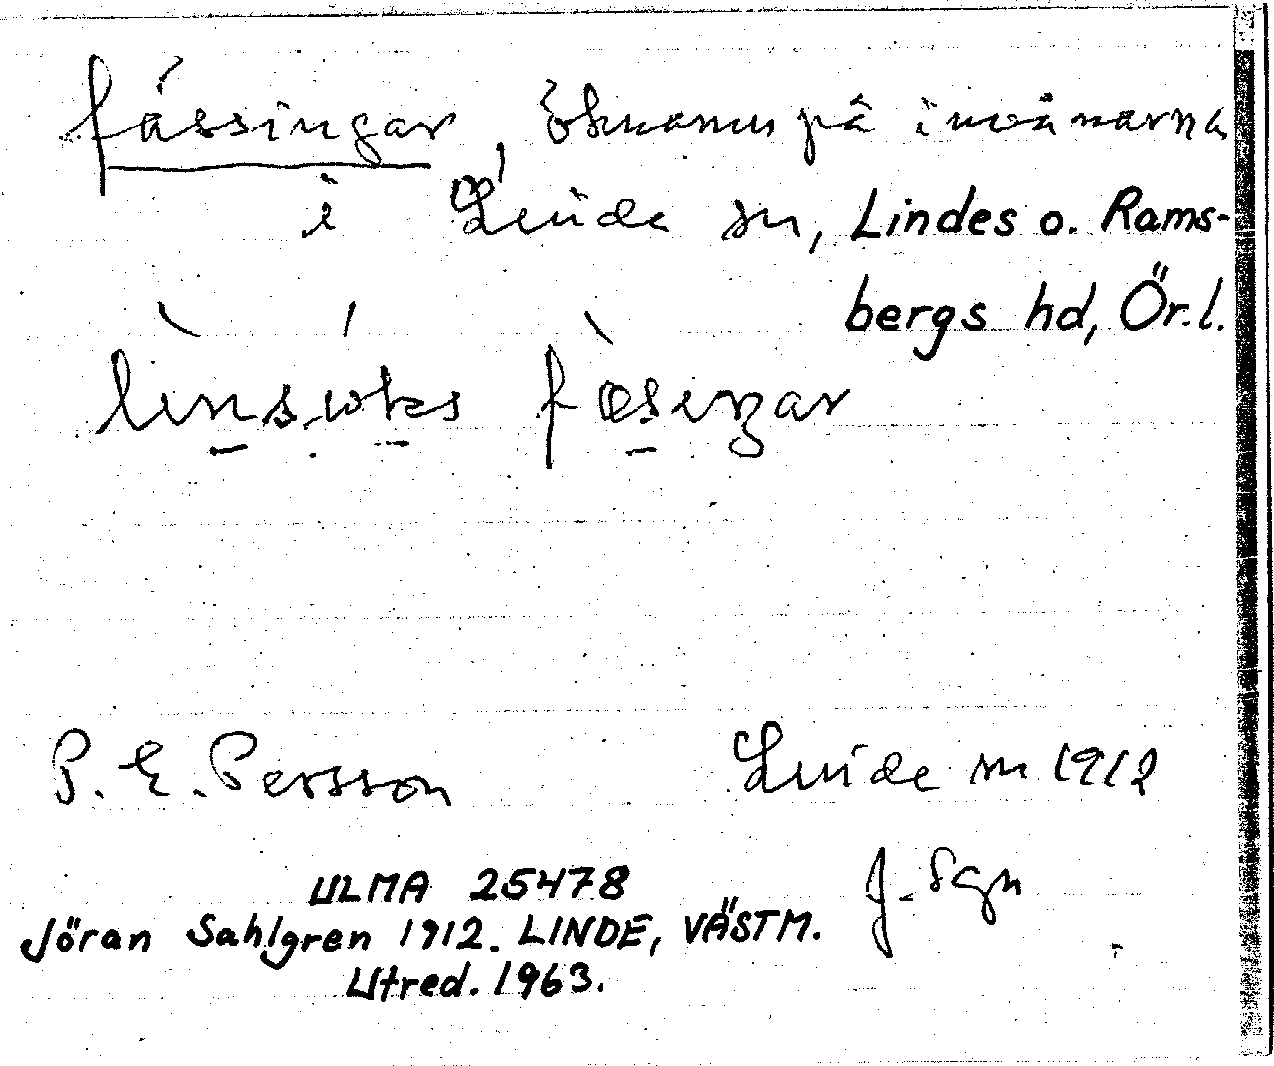 fássingar, öknamn på invånarna
i Linde sn, Lindes o. Rams-
bergs hd, Ör.l.
P. E. Persson Linde sn 1912
J. Sgn
ULMA 25478
Jöran Sahlgren 1912. LINDE, VÄSTM.
Utred. 1963.